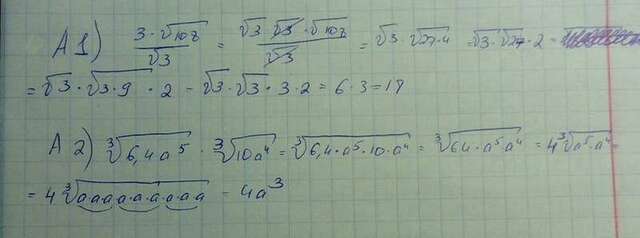 A 1) 3·√108/√3 = √3·√3·√108/√3 = √3·√27·4 = √3·√27·2 =
= √3·√3·9·2 = √3·√3·3·2 = 6·3 = 18
A 2) ∛6,4a⁵ · ∛10a⁴ = ∛6,4·a⁵·10·a⁴ = ∛64·a⁵a⁴ = 4∛a⁵·a⁴ =
= 4∛aaaa·a·a·a·a·a = 4a³